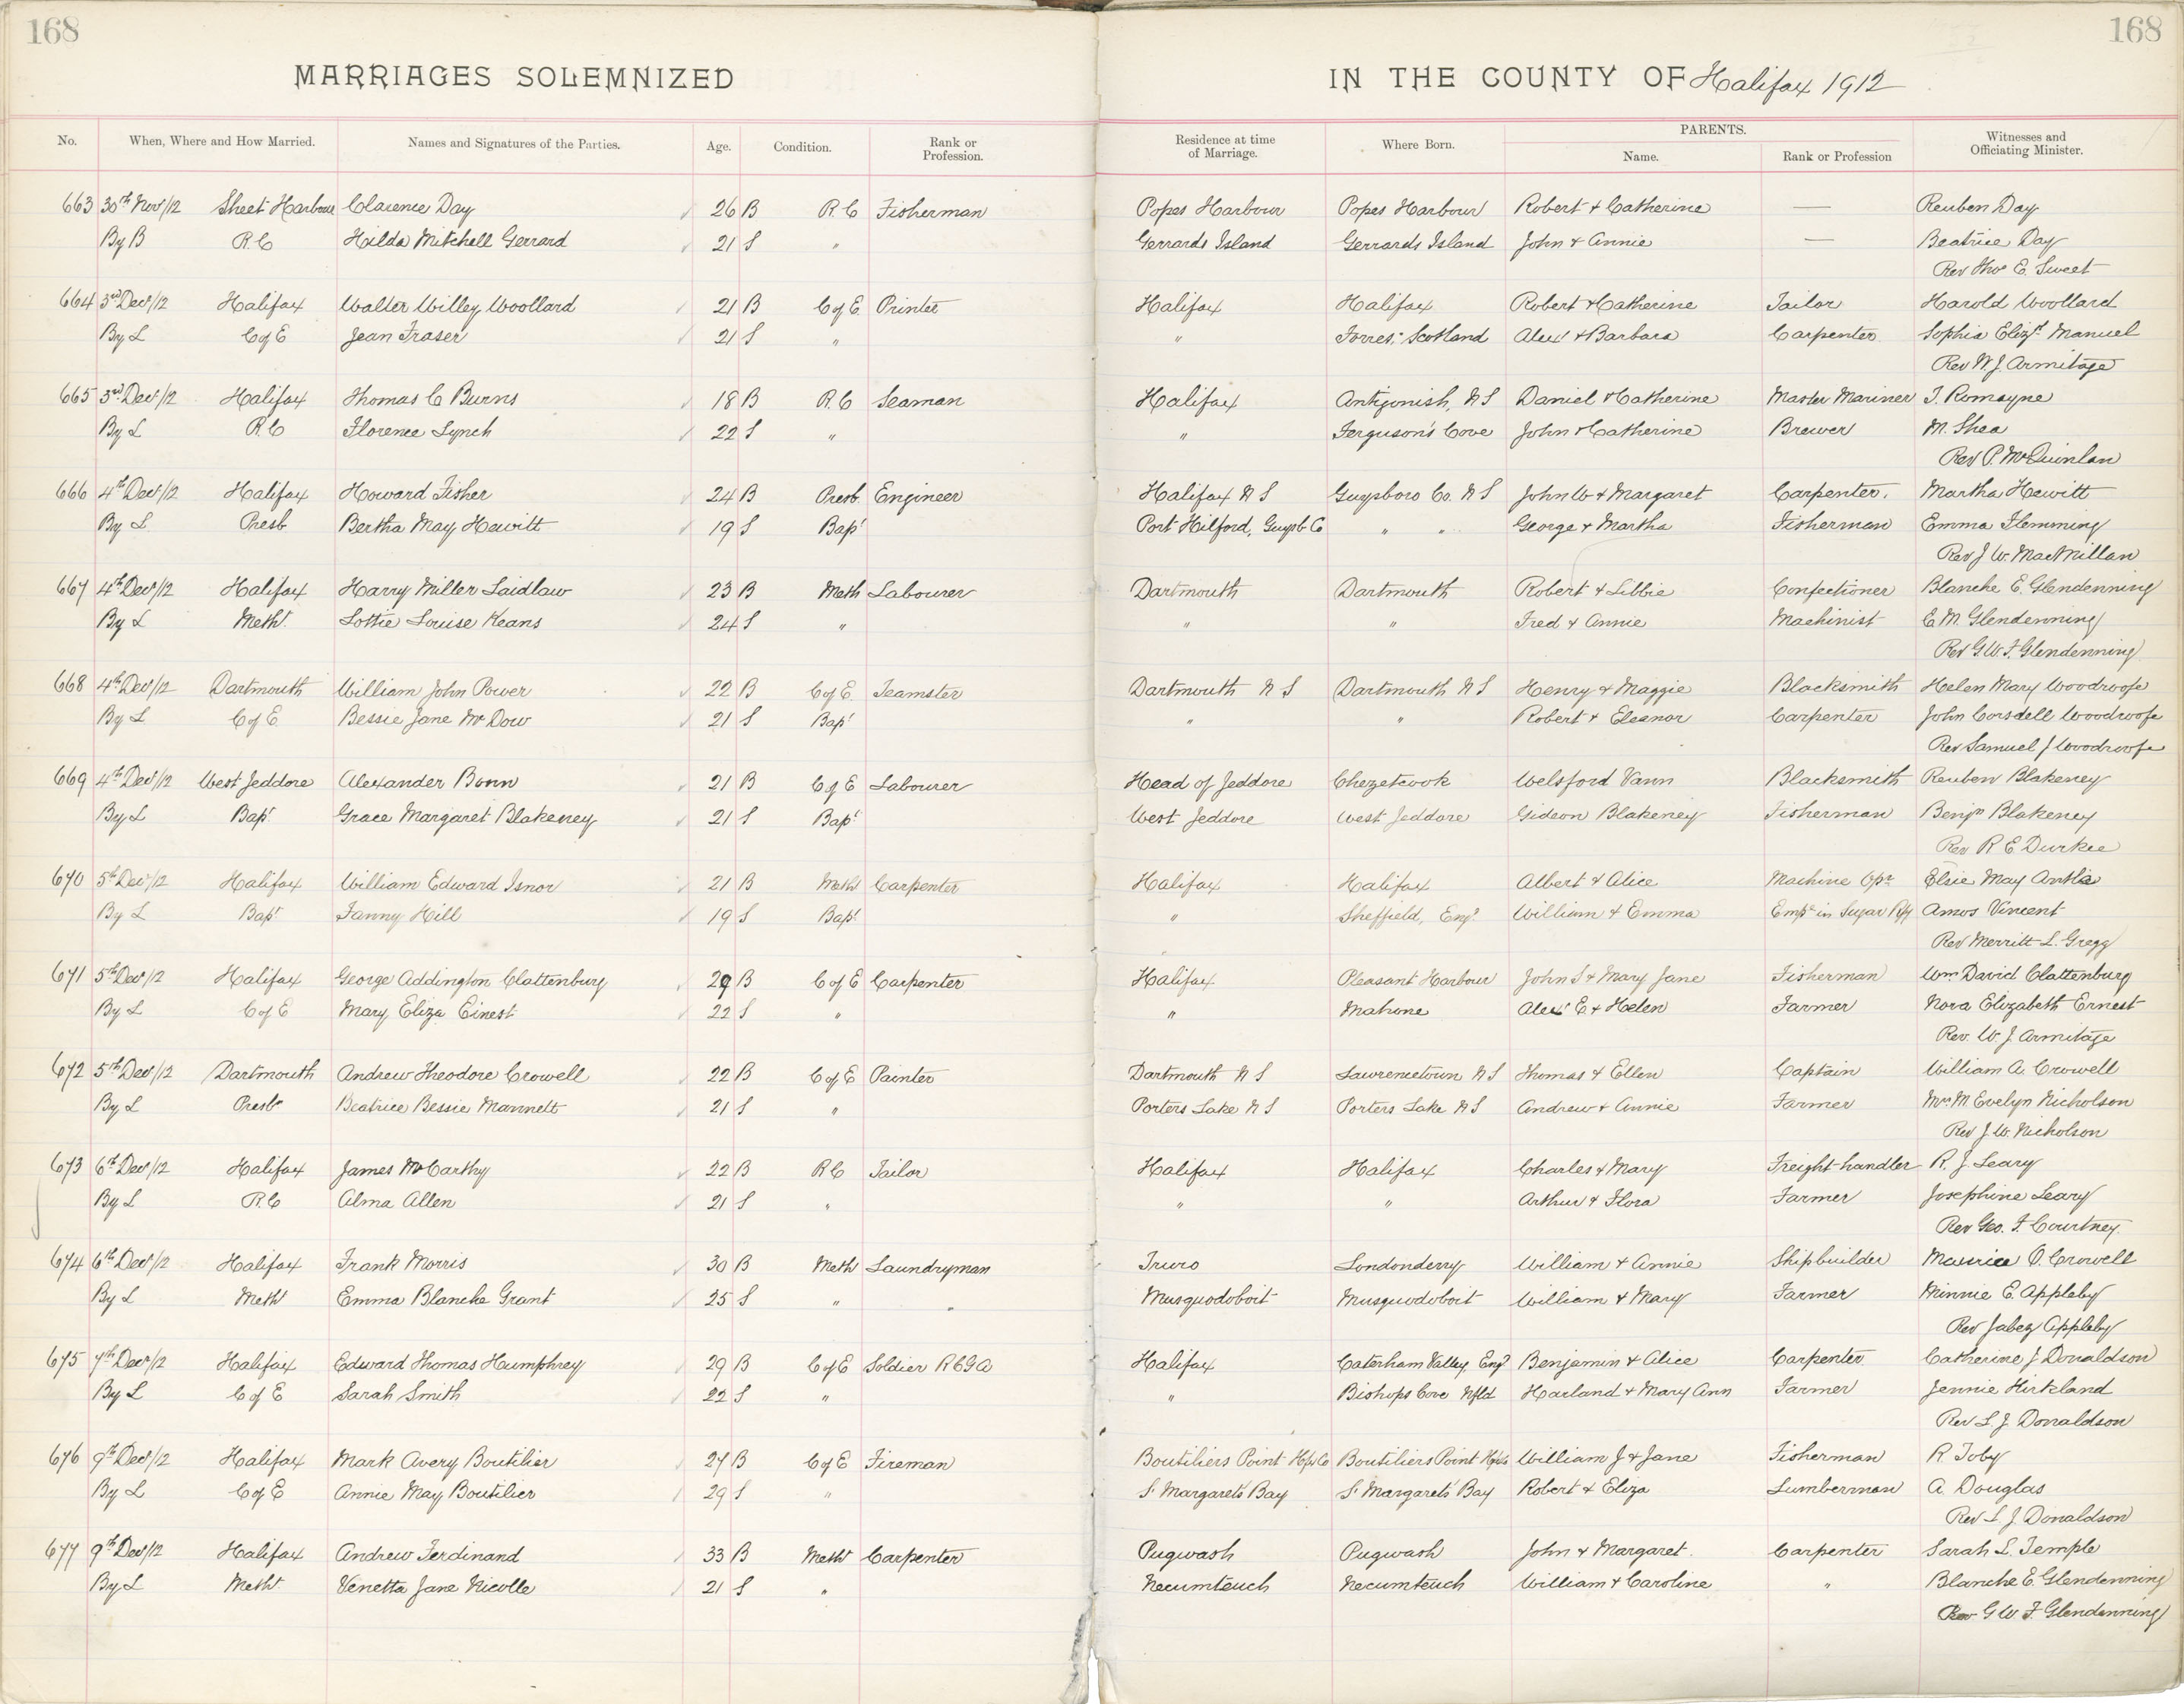 168 168
MARRIAGES SOLEMNIZED IN THE COUNTY OF Halifax 1912
No. When, Where and How Married. Names and Signatures of the Parties. Age. Condition. Rank or Profession. Residence at time of Marriage. Where Born. PARENTS. Name. Rank or Profession Witnesses and Officiating Minister.
663 30th Nov/12 Sheet Harbour Clarence Day 26 B R.C Fisherman Popes Harbour Popes Harbour Robert + Catherine — Reuben Day
By B R.C Hilda Mitchell Gerrard 21 S " Gerrards Island Gerrards Island John + Annie — Beatrice Day
Rev Thos E. Sweet
664 3rd Decr/12 Halifax Walter Willey Woollard 21 B C of E Printer Halifax Halifax Robert + Catherine Tailor Harold Woollard
By L C of E Jean Fraser 21 S " " Forres, Scotland Alexr + Barbara Carpenter Sophia Elizth Manuel
Rev W. J. Armitage
665 3rd Decr/12 Halifax Thomas C Burns 18 B R.C Seaman Halifax Antigonish, N S Daniel + Catherine Master Mariner T. Romayne
By L R.C Florence Lynch 22 S " " Ferguson's Cove John + Catherine Brewer M. Shea
Rev P. McQuinlan
666 4th Decr/12 Halifax Howard Fisher 24 B Presb. Engineer Halifax N S Guysboro Co. N S John W + Margaret Carpenter. Martha Hewitt
By L Presb. Bertha May Hewitt 19 S Bapt Port Hilford, Guysb Co " " George + Martha Fisherman Emma Flemming
Rev J W. MacMillan
667 4th Decr/12 Halifax Harry Miller Laidlaw 23 B Meth Labourer Dartmouth Dartmouth Robert + Libbie Confectioner Blanche E. Glendenning
By L Meth. Lottie Louise Keans 24 S " " " Fred + Annie Machinist E M. Glendenning
Rev G. W. F. Glendenning
668 4th Decr/12 Dartmouth William John Power 22 B C of E Teamster Dartmouth N S Dartmouth N S Henry + Maggie Blacksmith Helen Mary Woodroofe
By L C of E Bessie Jane McDow 21 S Bapt " " Robert + Eleanor Carpenter John Corsdell Woodroofe
Rev Samuel J Woodroofe
669 4th Decr/12 West Jeddore Alexander Bonn 21 B C of E Labourer Head of Jeddore Chezetcook Welsford Vann Blacksmith Reuben Blakeney
By L Bapt Grace Margaret Blakeney 21 S Bapt West Jeddore West Jeddore Gideon Blakeney Fisherman Benjn Blakeney
Rev R E Durkee
670 5th Decr/12 Halifax William Edward Isnor 21 B Meth Carpenter Halifax Halifax Albert + Alice Machine Opr Elsie May
By L Bapt Fanny Hill 19 S Bapt " Sheffield, Engd William + Emma Empd in Sugar Rfy Amos Vincent
Rev Merritt L. Gregg
671 5th Decr/12 Halifax George Addington Clattenburg 29 B C of E Carpenter Halifax Pleasant Harbour John S + Mary Jane Fisherman Wm David Clattenburg
By L C of E Mary Eliza Einest 22 S " " Mahone Alexr E + Helen Farmer Nora Elizabeth Ernest
Rev. W. J. Armitage
672 5th Decr/12 Dartmouth Andrew Theodore Crowell 22 B C of E Painter Dartmouth N S Lawrencetown N S Thomas + Ellen Captain William A. Crowell
By L Presbn Beatrice Bessie Mannett 21 S " Porters Lake N S Porters Lake N S Andrew + Annie Farmer Mrs M. Evelyn Nicholson
Rev J. W. Nicholson
673 6th Decr/12 Halifax James McCarthy 22 B R C Tailor Halifax Halifax Charles + Mary Freight-handler R. J. Leary
By L R.C Alma Allen 21 S " " " Arthur + Flora Farmer Josephine Leary
Rev Geo. F. Courtney.
674 6th Decr/12 Halifax Frank Morris 30 B Meth Laundryman Truro Londonderry William + Annie Shipbuilder Maurice O. Crowell
By L Meth Emma Blanche Grant 25 S " " Musquodoboit Musquodoboit William + Mary Farmer Minnie E. Appleby
Rev Jabez Appleby
675 7th Decr/12 Halifax Edward Thomas Humphrey 29 B C of E Soldier R C G A Halifax Caterham Valley, Engd Benjamin + Alice Carpenter Catherine J Donaldson
By L C of E Sarah Smith 22 S " " Bishops Cove Nfld Harland + Mary Ann Farmer Jennie Hirkland
Rev L. J. Donaldson
676 9th Decr/12 Halifax Mark Avery Boutilier 27 B C of E Fireman Boutiliers Point Hfx Co Boutiliers Point Hfx Co William J + Jane Fisherman R Toby
By L C of E Annie May Boutilier 29 S " St Margaret's Bay St Margaret's Bay Robert + Eliza Lumberman A. Douglas
Rev L. J. Donaldson
677 9th Decr/12 Halifax Andrew Ferdinand 33 B Meth Carpenter Pugwash Pugwash John + Margaret Carpenter Sarah L. Temple
By L Meth. Venetta Jane Nicolle 21 S " Necumteuch Necumteuch William + Caroline " Blanche E. Glendenning
Rev G W F. Glendenning